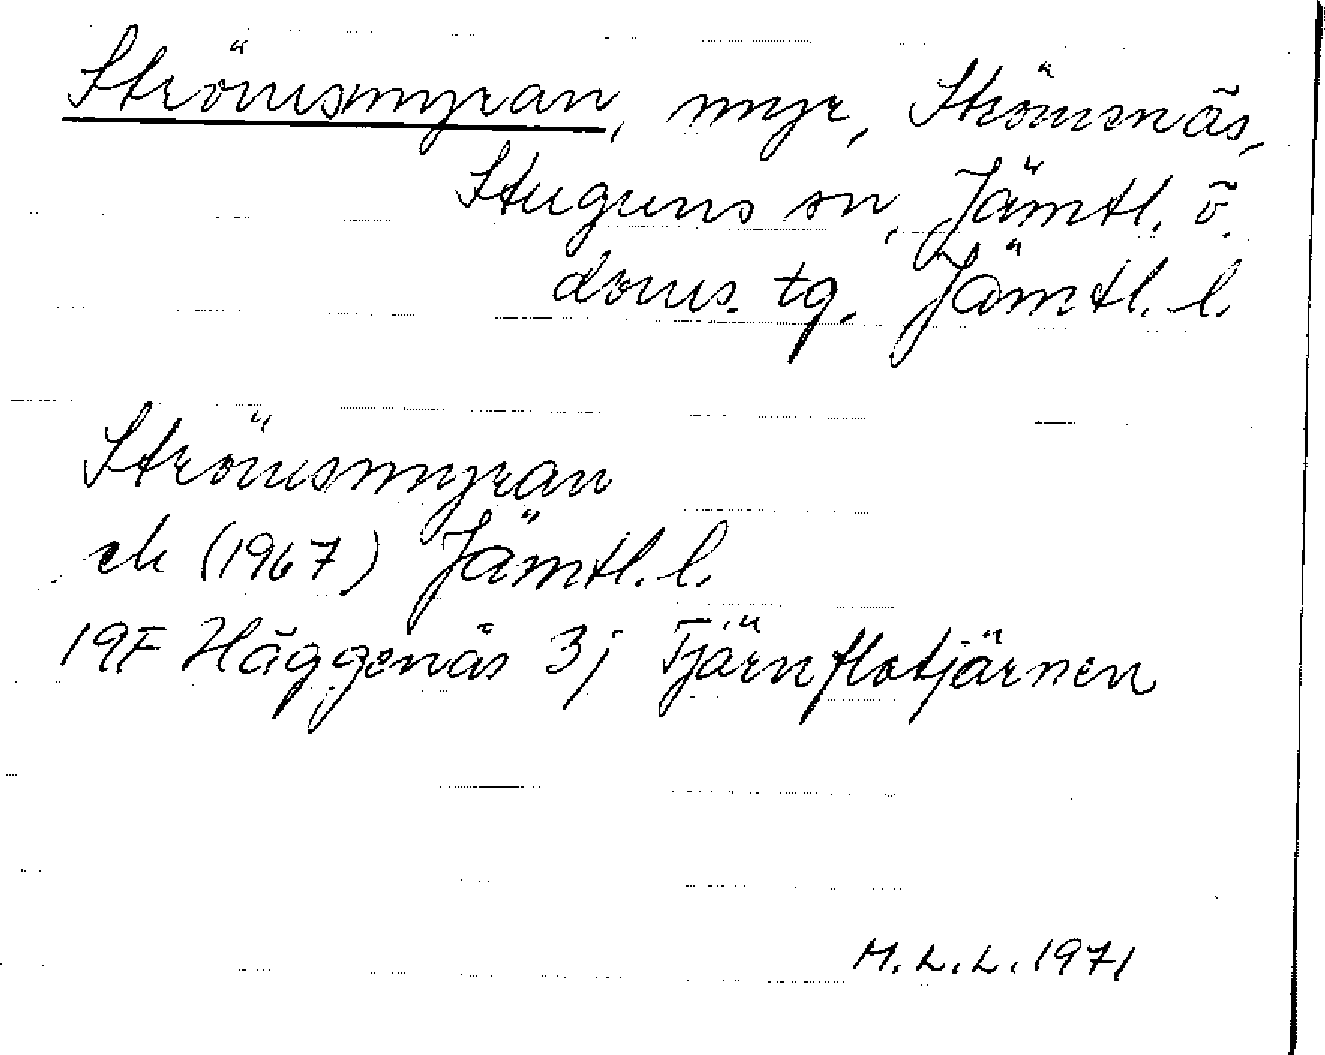 Strömsmyran, myr, Strömsnäs,
Stuguns sn, Jämtl. ö.
doms. tg, Jämtl. l.
Strömsmyran
ek (1967) Jämtl. l.
19F Häggenås 3j Tjärnflotjärnen
M.L.L. 1971